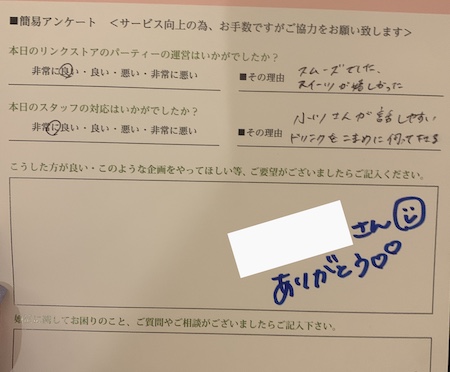 ■簡易アンケート ＜サービス向上の為、お手数ですがご協力をお願い致します＞
本日のリンクストアのパーティーの運営はいかがでしたか？
非常に良い・良い・悪い・非常に悪い
■その理由
スムーズでした、
スイーツが嬉しかった
本日のスタッフの対応はいかがでしたか？
非常に良い・良い・悪い・非常に悪い
■その理由
さんが話しやすい
ドリンクをこまめに伺って
こうした方が良い・このような企画をやってほしい等、ご要望がございましたらご記入ください。
さん
ありがとう♡♡
してお困りのこと、ご質問やご相談がございましたらご記入下さい。